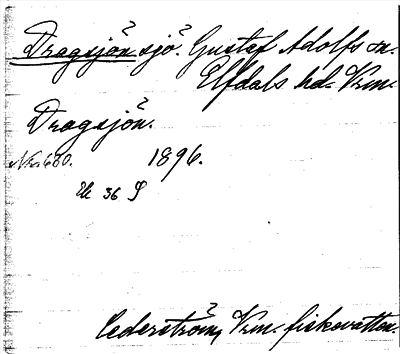 Dragsjön sjö. Gustaf Adolfs sn.
Elfdals hd. Vrm.
Dragsjön.
Nr. 680. 1896.
Ek 36 S
Cederström, Vrm. fiskevatten.